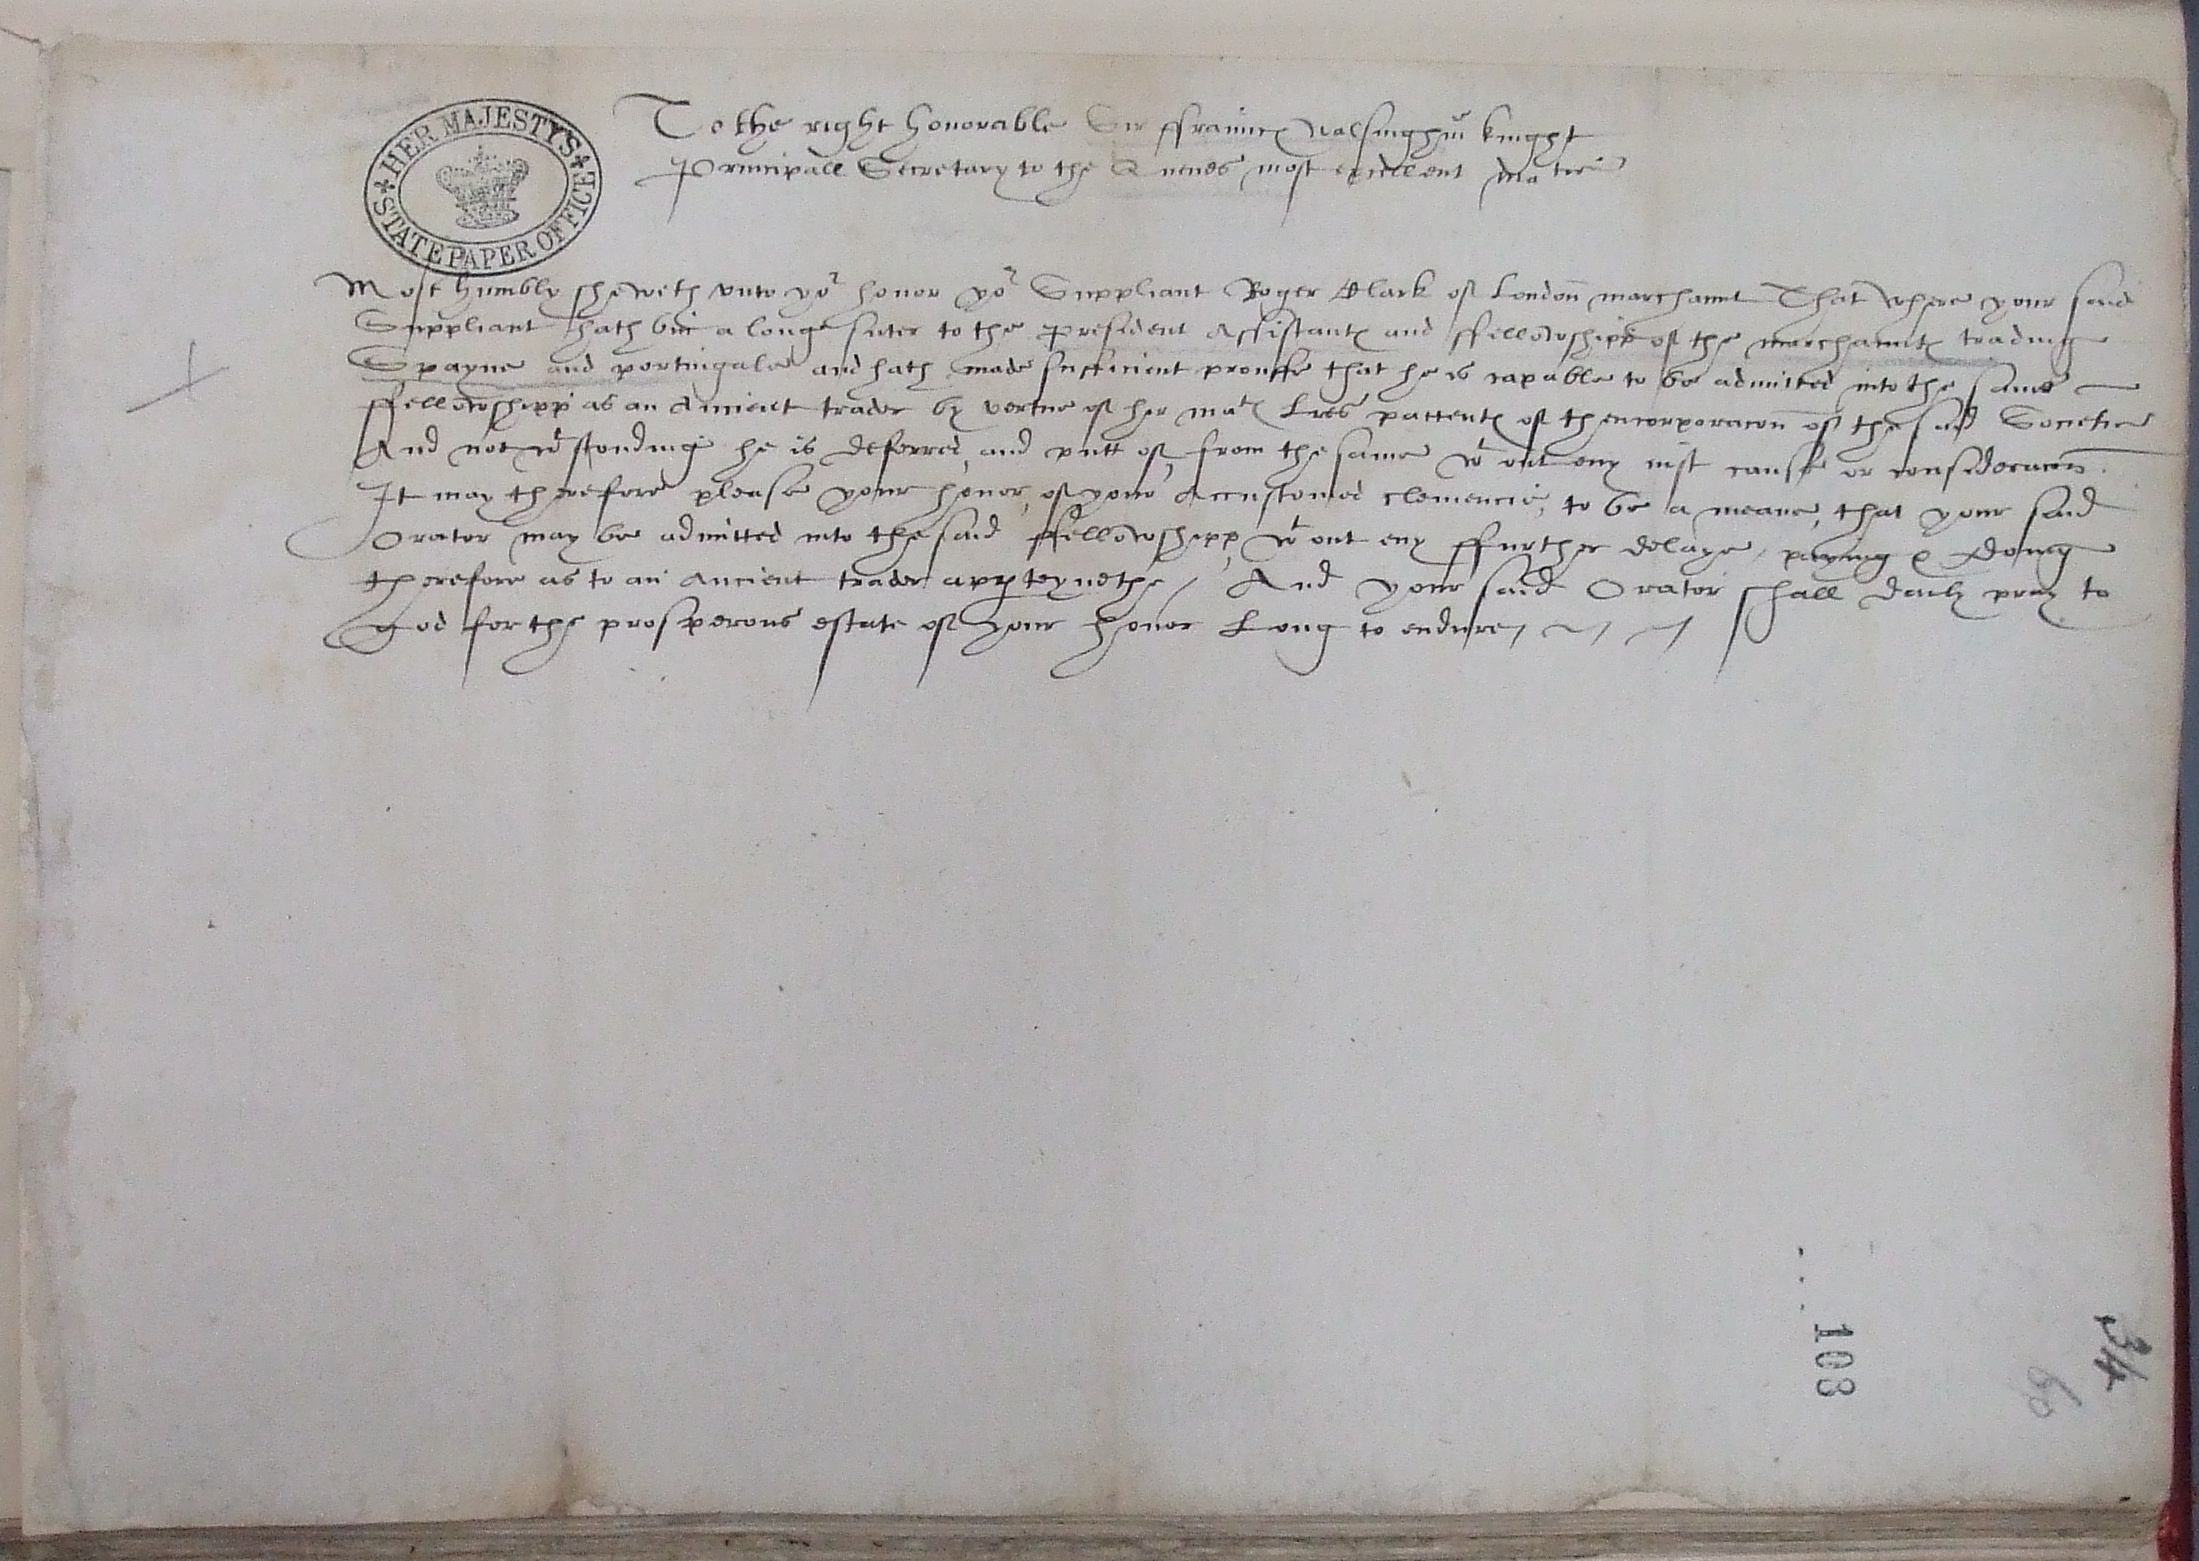 HER MAJESTY'S
STATE PAPER OFFICE
To the right honorable Sir ffraunc Walsinghm knight
Principall Secretary to the Quenes most exellent matie
Most humbly sheweth unto yor honor yor Suppliant Roger Clark of London marchannt That where your said
Suppliant hath bin a longe suter to the president Assistants and ffellowshipp of the marchaunts trading
Spayne and portingale and hath made sufficient prouffe that he is capable to be admitted into the same
ffellowshipp as an Auncient trader by vertue of her mats Lres pattents of thencorporacon of the said Societie
And notwthstonding he is deferred, and putt of, from the same wthout eny iust cause or consideracon.
It may therefore please your honor, of your Accustomed clemencie, to be a meane, that your said
Orator may be admitted into the said ffellowshipp, wthout eny ffurther delaye, paying & doing
therefore as to an Ancient trader apperteynethe / And your said Orator shall daily pray to
god for the prosperous estate of your honor Long to endure
108
34